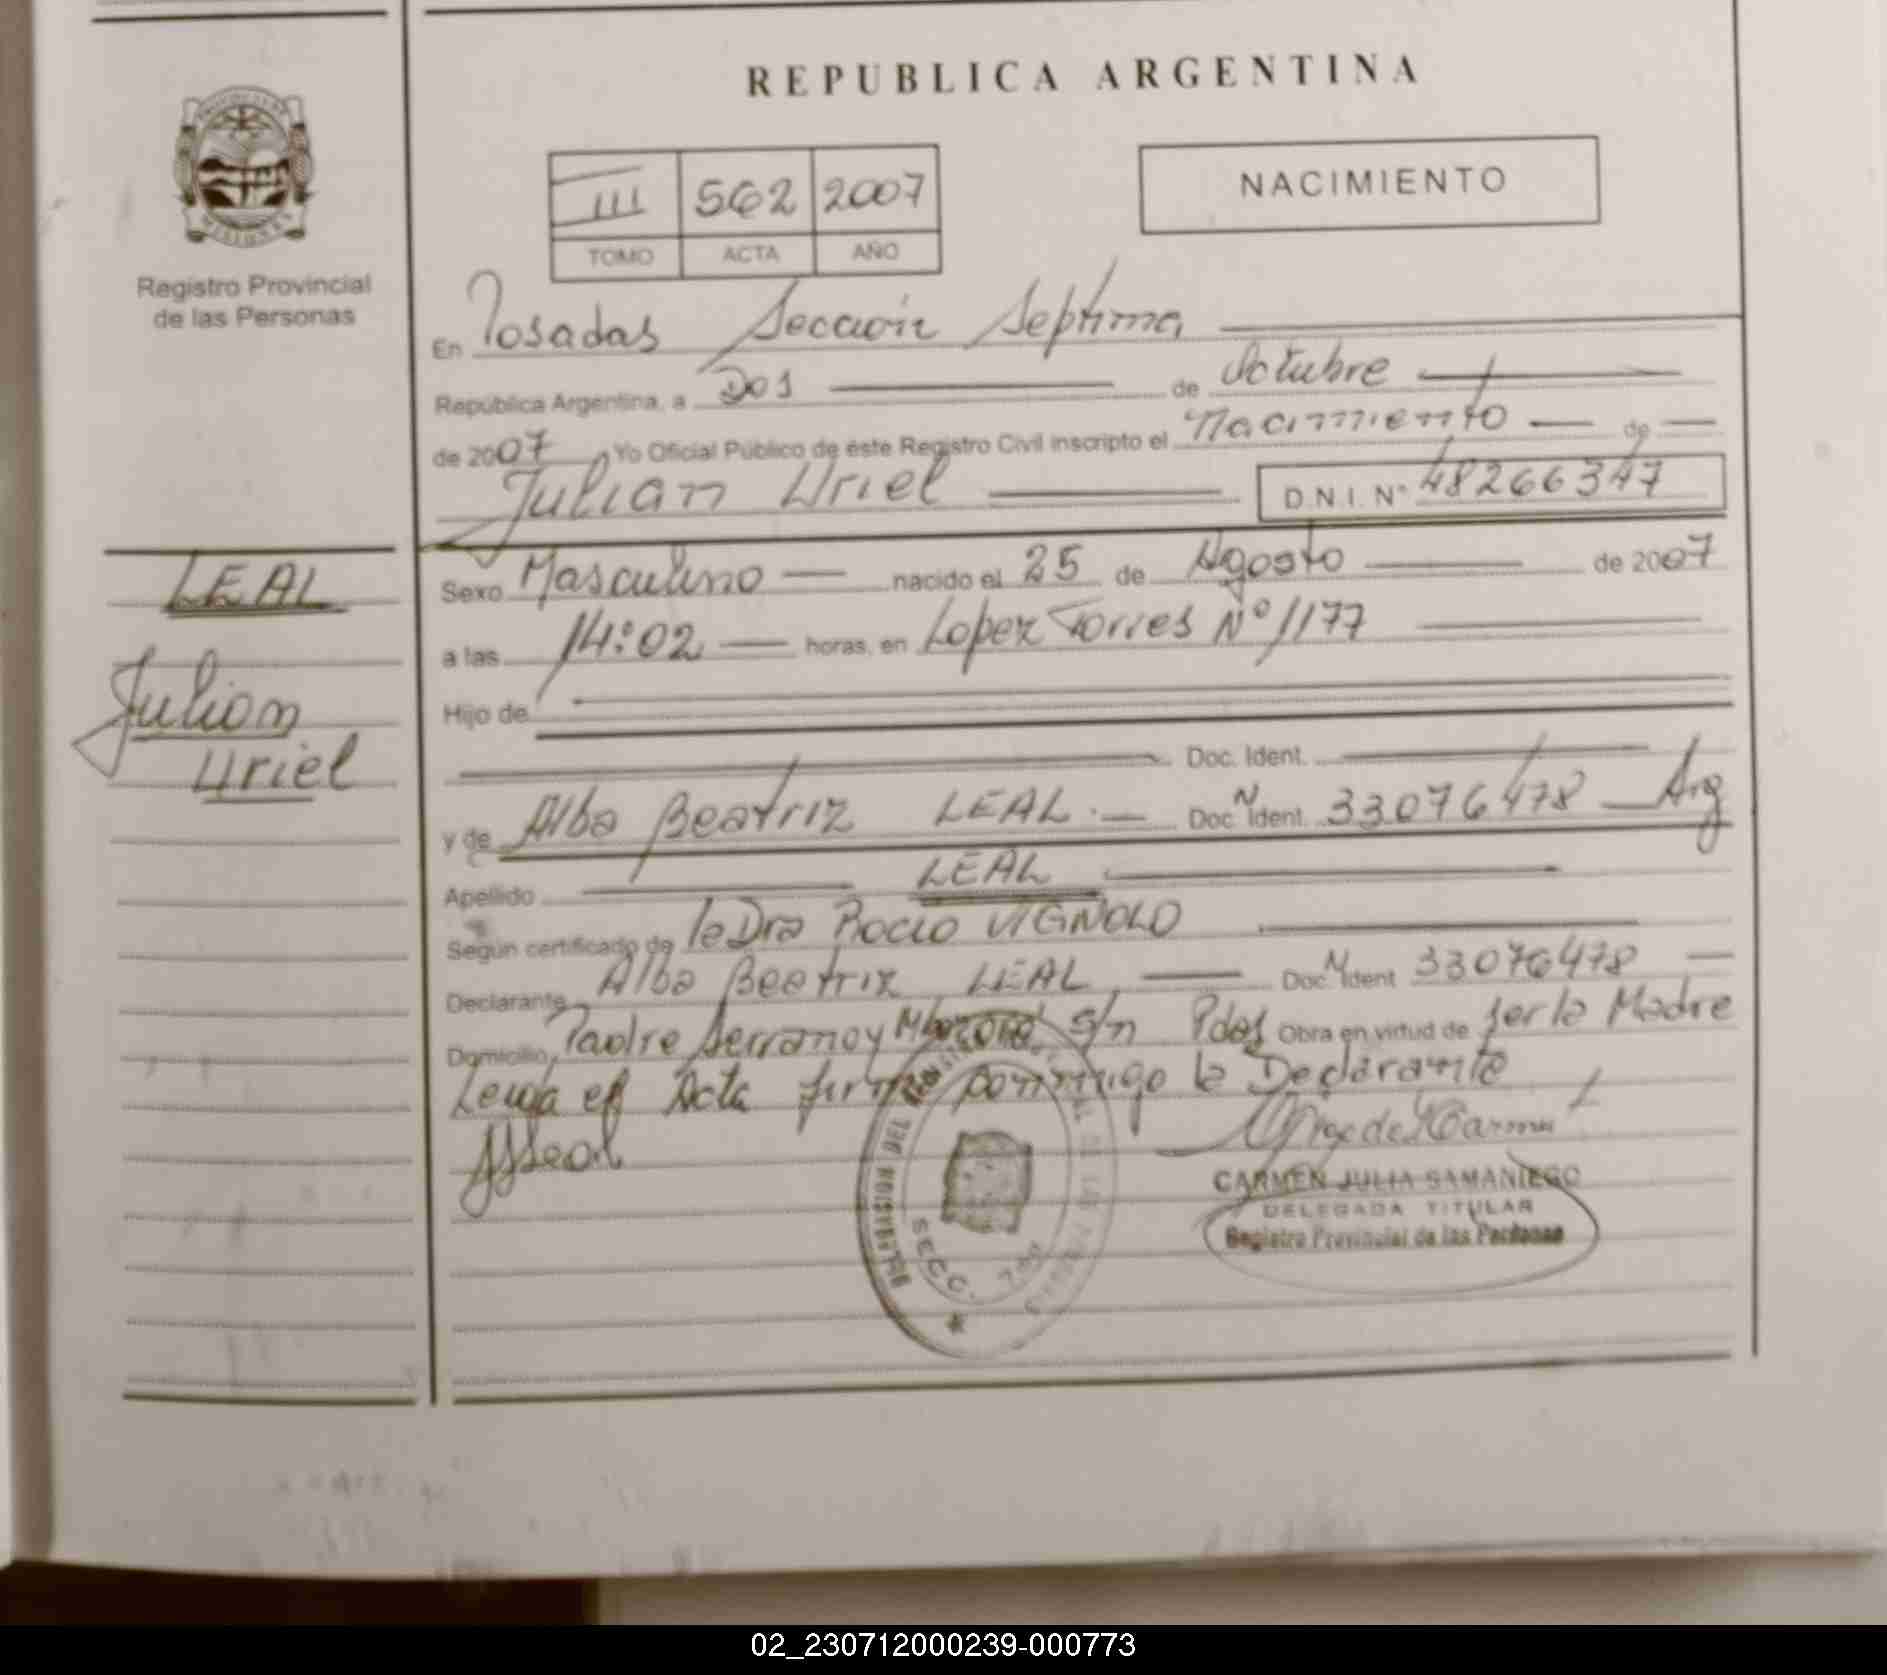 REPUBLICA ARGENTINA
Registro Provincial
de las Personas
III 562 2007
TOMO ACTA AÑO
NACIMIENTO
En Posadas Sección Septima
República Argentina, a Dos de Octubre
de 2007 Yo Oficial Público de éste Registro Civil inscripto el Nacimiento de
Julian Uriel D.N.I. Nº 48266347
LEAL
Julian
Uriel
Sexo Masculino nacido el 25 de Agosto de 2007
a las 14:02 horas, en Lopez Torres Nº 1177
Hijo de
Doc. Ident.
y de Alba Beatriz LEAL.- Doc. N Ident. 33076478 Arg
Apellido LEAL
Según certificado de la Dra Rocio VIGNOLO
Declarante Alba Beatriz LEAL Doc. N Ident 33076478
Domicilio Padre Serrano y s/n Pdas Obra en virtud de ser la Madre
Leida el Acta firma conmigo la Declarante
CARMEN JULIA SAMANIEGO
DELEGADA TITULAR
Registro Provincial de las Personas
SECC. 7
02_230712000239-000773